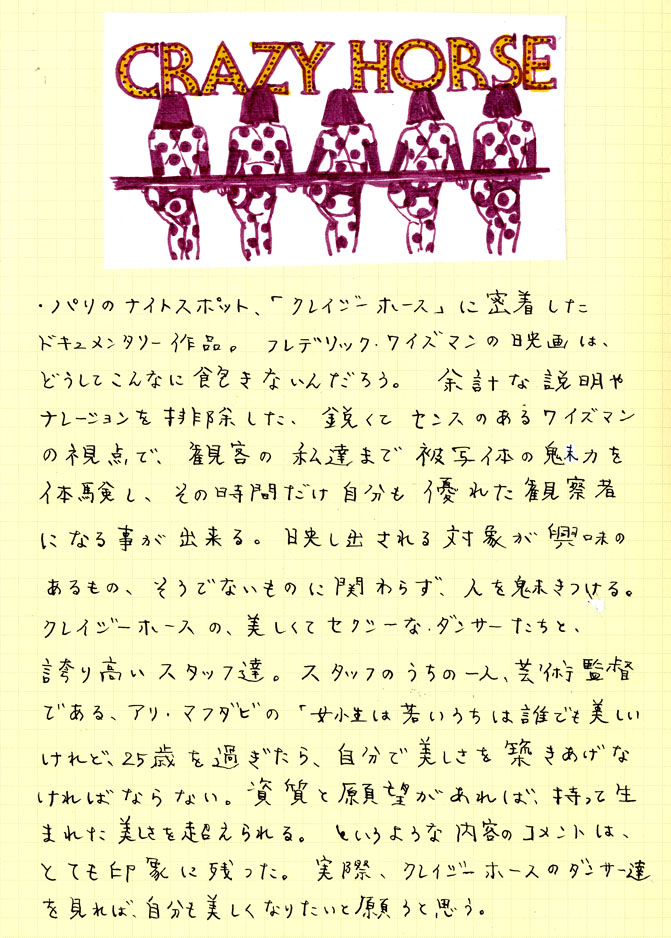 CRAZY HORSE
・パリのナイトスポット、「クレイジーホース」に密着した
ドキュメンタリー作品。 フレデリック・ワイズマンの映画は、
どうしてこんなに飽きないんだろう。 余計な説明や
ナレーションを排除した、鋭くて センスのあるワイズマン
の視点で、観客の 私達まで 被写体の魅力を
体験し、その時間だけ自分も 優れた観察者
になる事が 出来る。 映し出される対象が興味の
あるもの、そうでないものに関わらず、人を魅きつける。
クレイジーホースの、美しくてセクシーな・ダンサーたちと、
誇り高いスタッフ達。 スタッフのうちの一人、芸術監督
である、アリ・マフダビの「女性は若いうちは誰でも美しい
けれど、25歳を過ぎたら、自分で美しさを築きあげな
ければならない。資質と願望があれば、持って生
まれた美しさを超えられる。 というような内容のコメントは、
とても印象に残った。 実際、クレイジーホースのダンサー達
を見れば、自分も美しくなりたいと願うと思う。